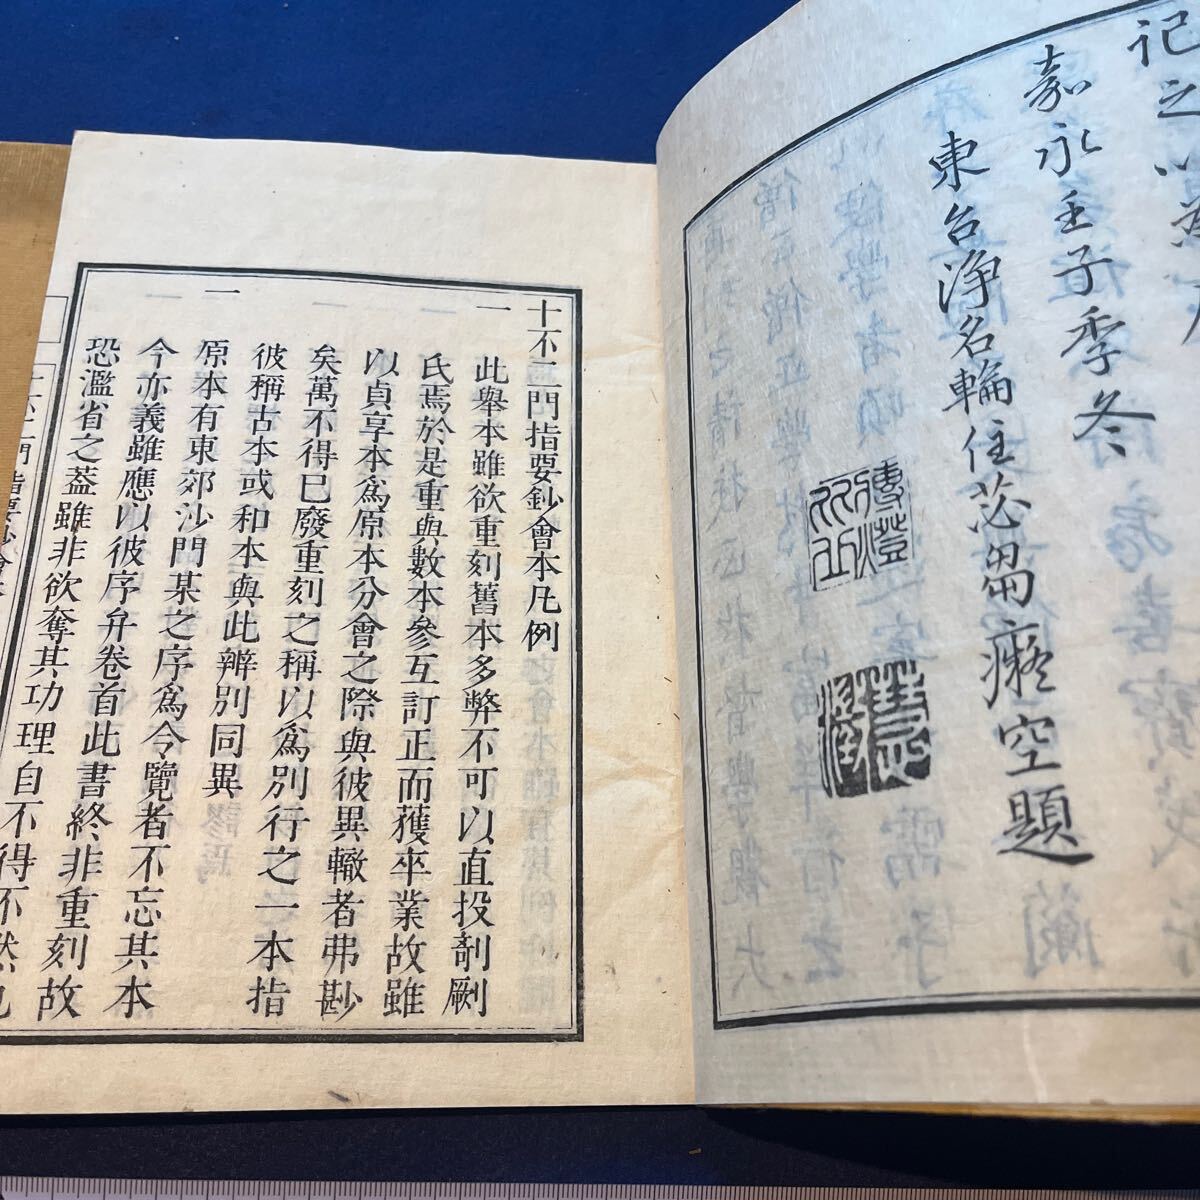 記之以
嘉永壬子季冬
東台浄名輪住苾芻癡空題
十不二門指要鈔會本凡例
一此舉本雖欲重刻舊本多弊不可以直投剞劂
氏焉於是重與數本參互訂正而獲卒業故雖
以貞享本爲原本分會之際與彼異轍者弗尠
矣萬不得已廢重刻之稱以爲別行之一本指
彼稱古本或和本與此辨別同異
一原本有東郊沙門某之序爲令覽者不忘其本
今亦義雖應以彼序弁卷首此書終非重刻故
恐濫省之蓋雖非欲奪其功理自不得不然也